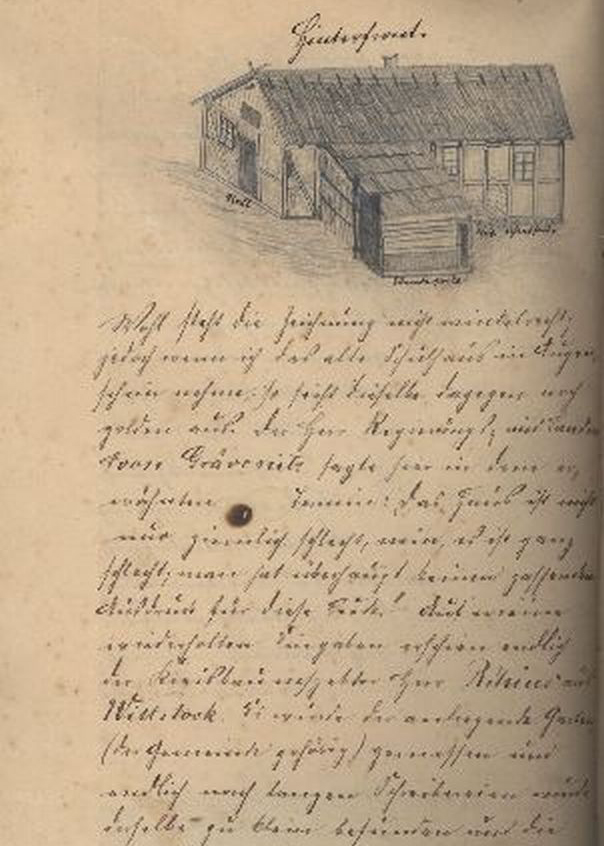 Hinterfront.
Stall
Wohl steht die Zeichnung nicht winkelrecht,
jedoch wenn ich das alte Schulhaus in Augen-
schein nehme, so sieht dieselbe dagegen noch
golden aus. Der Herr Regierungs- und Landrat
von Grävenitz sagte hier in dem er-
wähnten Termin: Das Haus ist nicht
nur ziemlich schlecht, nein, es ist ganz
schlecht; man hat überhaupt keinen passenden
Ausdruck für diese Bude." Auf meine
wiederholten Eingaben erschien endlich
der Kreisbauinspektor Herr aus
Wittstock. Es wurde der anliegende Garten
(der Gemeinde gehörig) gemessen und
endlich nach langen Schreibereien wurde
derselbe zu klein befunden und die